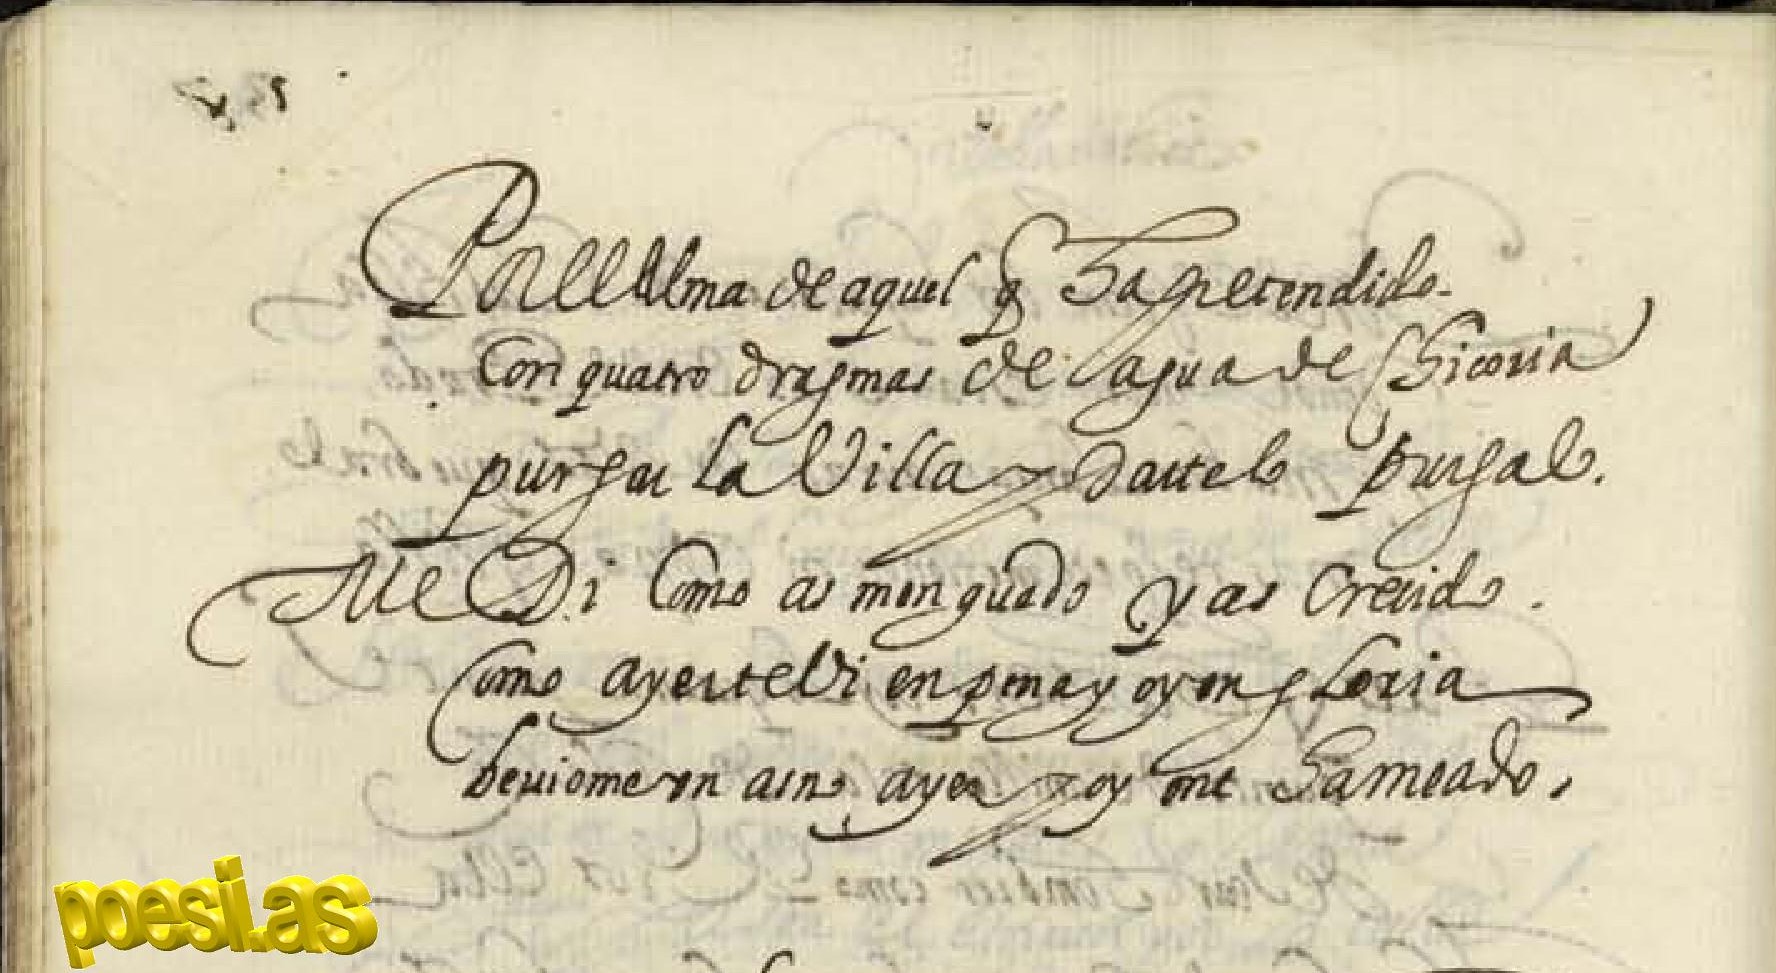 Por el Alma de aquel q̃ ha pretendido.
Con quatro dragmas de agua de Chicoria
purgar la Villa y darte lo purgado.
Me Di Como as menguado y as Crecido.
Como ayer te Vi en pena y oy en gloria
beuiome vn asno ayer y oy me ha meado.
poesi.as